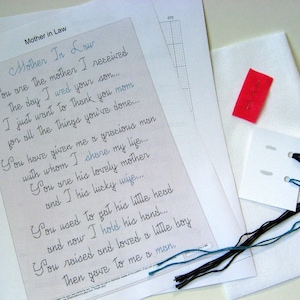 Mother in Law
Mother In Law
You are the mother I received
the day I wed your son...
I just want to thank you mom
for all the things you've done...
You have given me a gracious man
with whom I share my life...
You are his lovely mother
and I his lucky wife...
You used to pat his little head
and now I hold his hand...
You raised and loved a little boy
then gave to me a man.